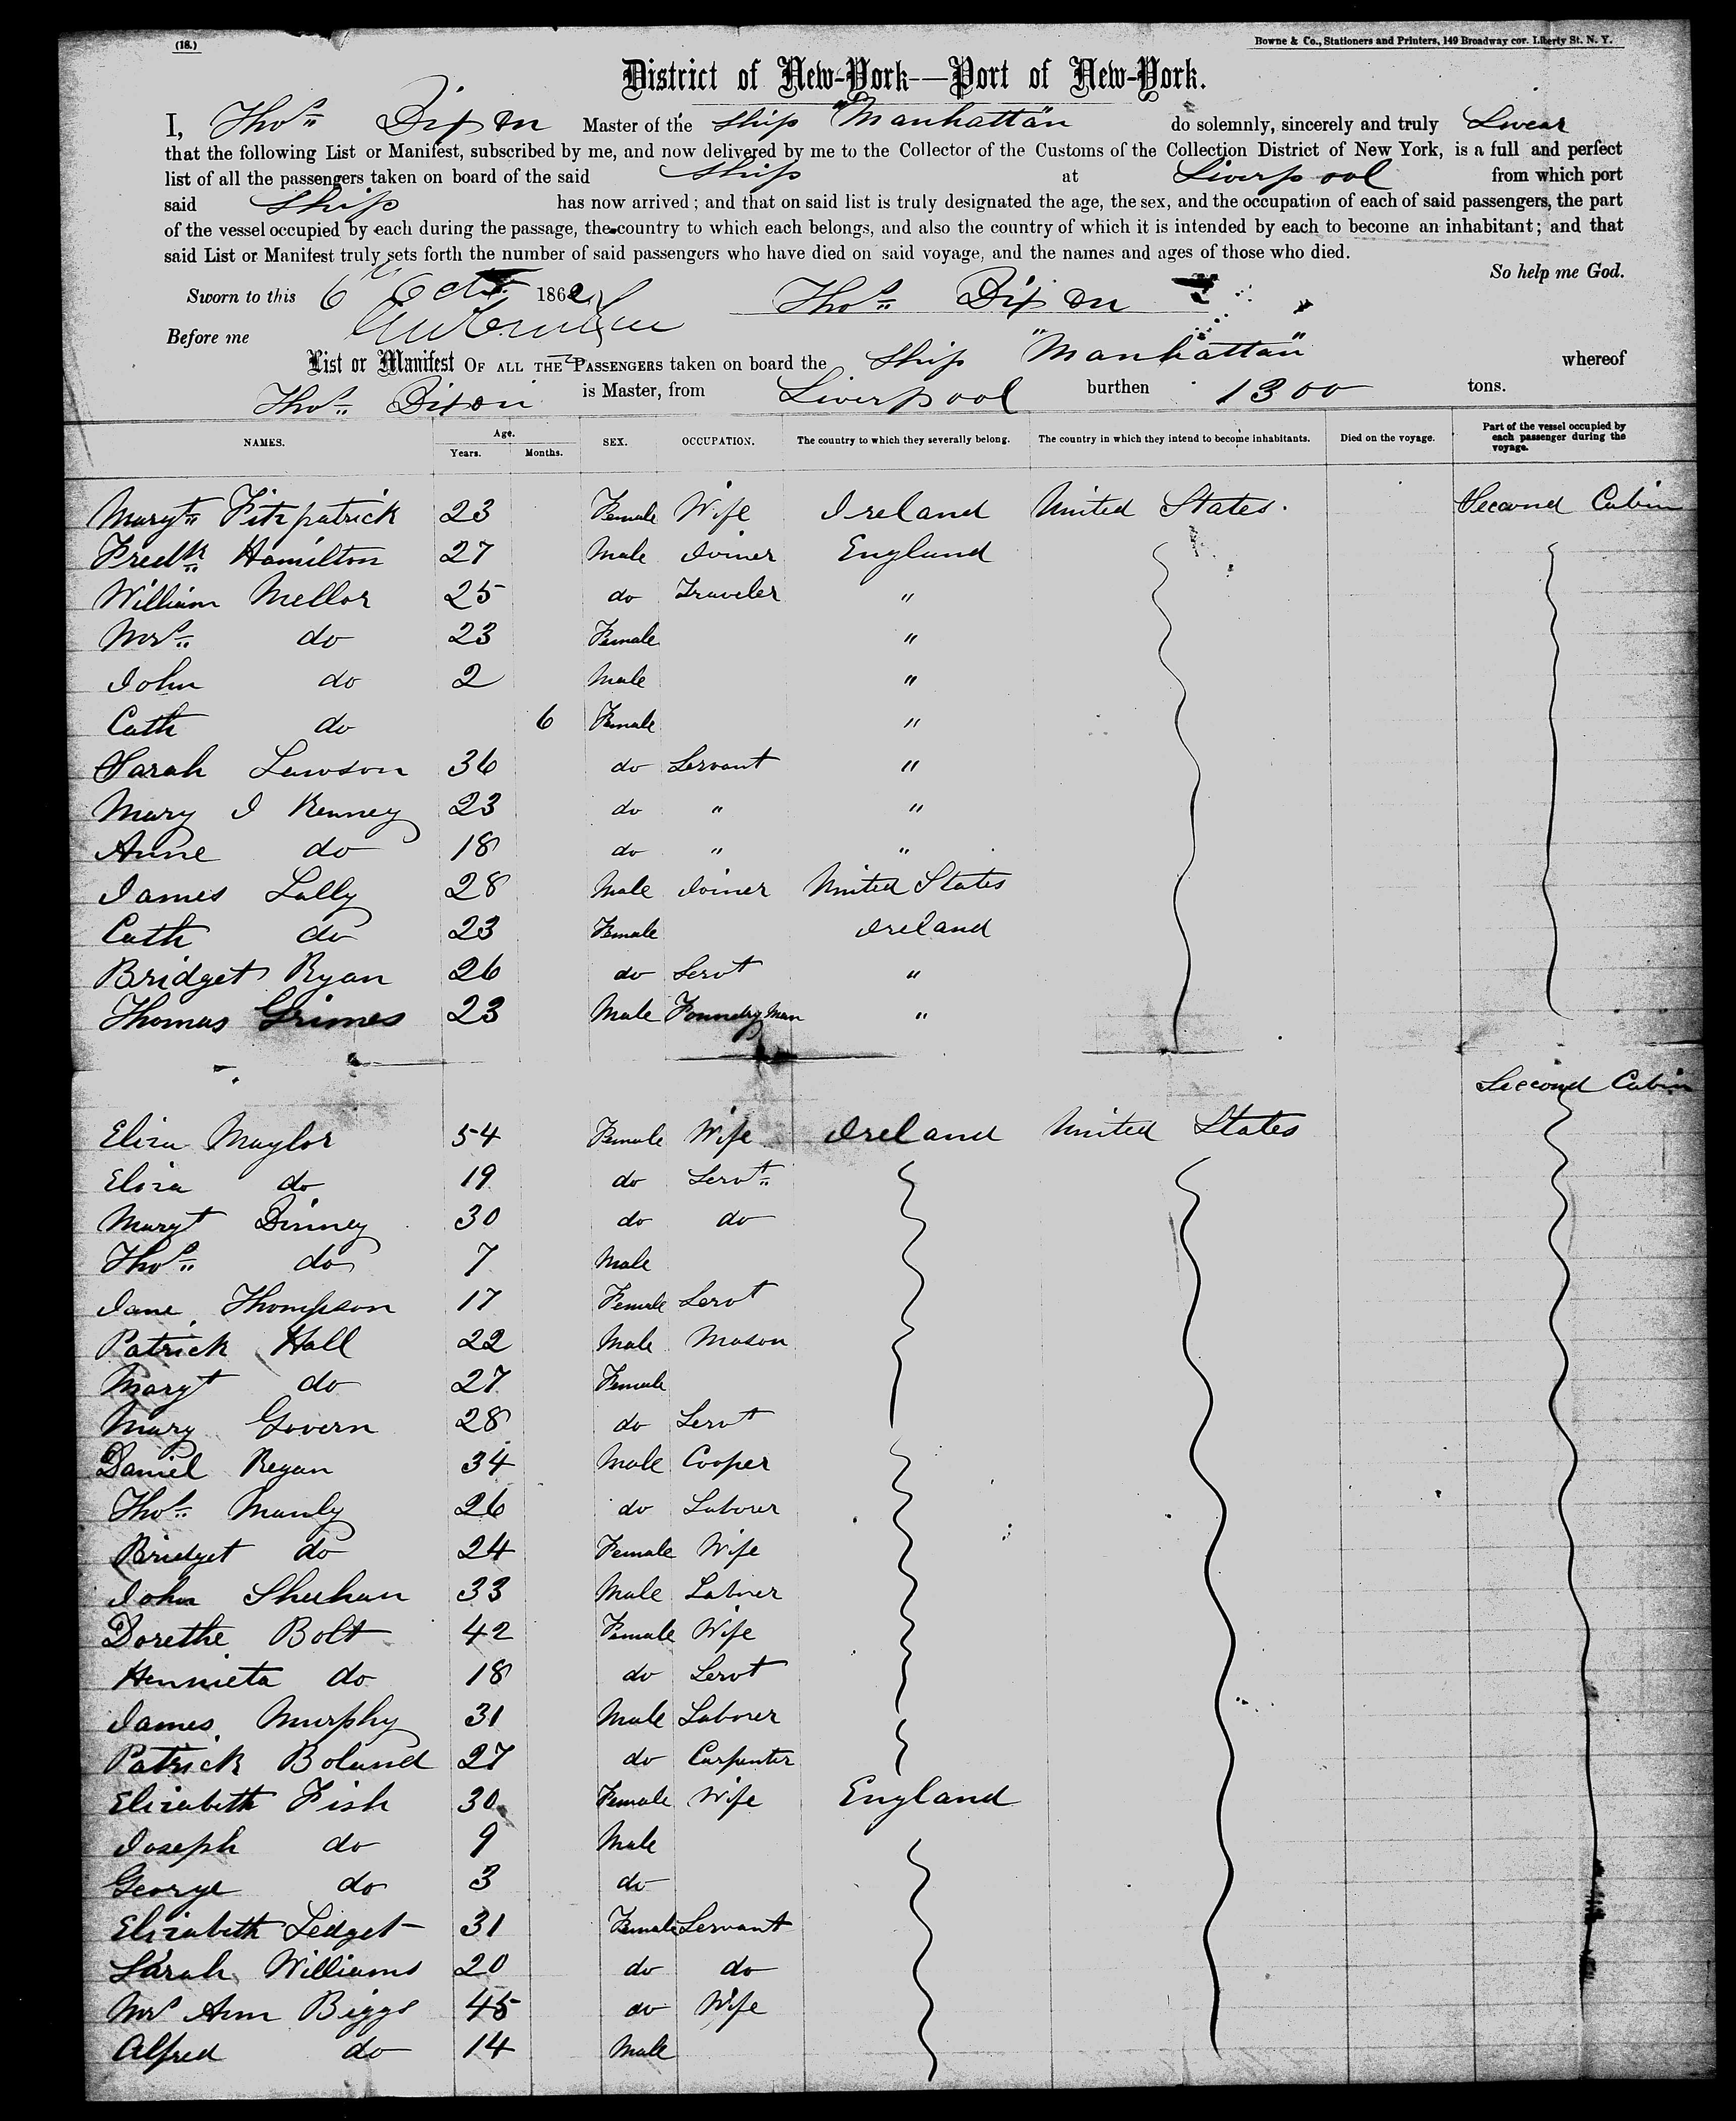 (18.)
Bowne & Co., Stationers and Printers, 149 Broadway cor. Liberty St. N. Y.
District of New-York—Port of New-York.
I, Thos. Dixon Master of the Ship "Manhattan" do solemnly, sincerely and truly Swear
that the following List or Manifest, subscribed by me, and now delivered by me to the Collector of the Customs of the Collection District of New York, is a full and perfect
list of all the passengers taken on board of the said Ship at Liverpool from which port
said Ship has now arrived; and that on said list is truly designated the age, the sex, and the occupation of each of said passengers, the part
of the vessel occupied by each during the passage, the country to which each belongs, and also the country of which it is intended by each to become an inhabitant; and that
said List or Manifest truly sets forth the number of said passengers who have died on said voyage, and the names and ages of those who died.
So help me God.
Sworn to this 6 Oct 186 Thos. Dixon
Before me
List or Manifest OF ALL THE PASSENGERS taken on board the Ship "Manhattan" whereof
Thos. Dixon is Master, from Liverpool burthen 1300 tons.
NAMES. Age. Years. Months. SEX. OCCUPATION. The country to which they severally belong. The country in which they intend to become inhabitants. Died on the voyage. Part of the vessel occupied by each passenger during the voyage.
Maryt. Fitzpatrick 23 Female Wife Ireland United States. Second Cabin
Fredk. Hamilton 27 Male Joiner England
William Mellor 25 do Traveler "
Mrs. do 23 Female "
John do 2 Male "
Cath do 6 Female "
Sarah Lawson 36 do Servant "
Mary J Kenney 23 do " "
Anne do 18 do " "
James Lally 28 Male Joiner United States
Cath do 23 Female Ireland
Bridget Ryan 26 do Servt "
Thomas Grimes 23 Male Foundry Man "
Second Cabin
Eliza Maylor 54 Female Wife Ireland United States
Eliza do 19 do Servt.
Maryt Dinney 30 do do
Thos. do 7 Male
Jane Thompson 17 Female Servt
Patrick Hall 22 Male Mason
Maryt do 27 Female
Mary Govern 28 do Servt
Daniel Regan 34 Male Cooper
Thos. Manly 26 do Laborer
Bridget do 24 Female Wife
John Sheehan 33 Male Laborer
Dorethe Bolt 42 Female Wife
Hennieta do 18 do Servt
James Murphy 31 Male Laborer
Patrick Boland 27 do Carpenter
Elizabeth Fish 30 Female Wife England
Joseph do 9 Male
George do 3 do
Elizabeth Ledget 31 Female Servant
Sarah Williams 20 do do
Mrs Ann Biggs 45 do Wife
Alfred do 14 Male